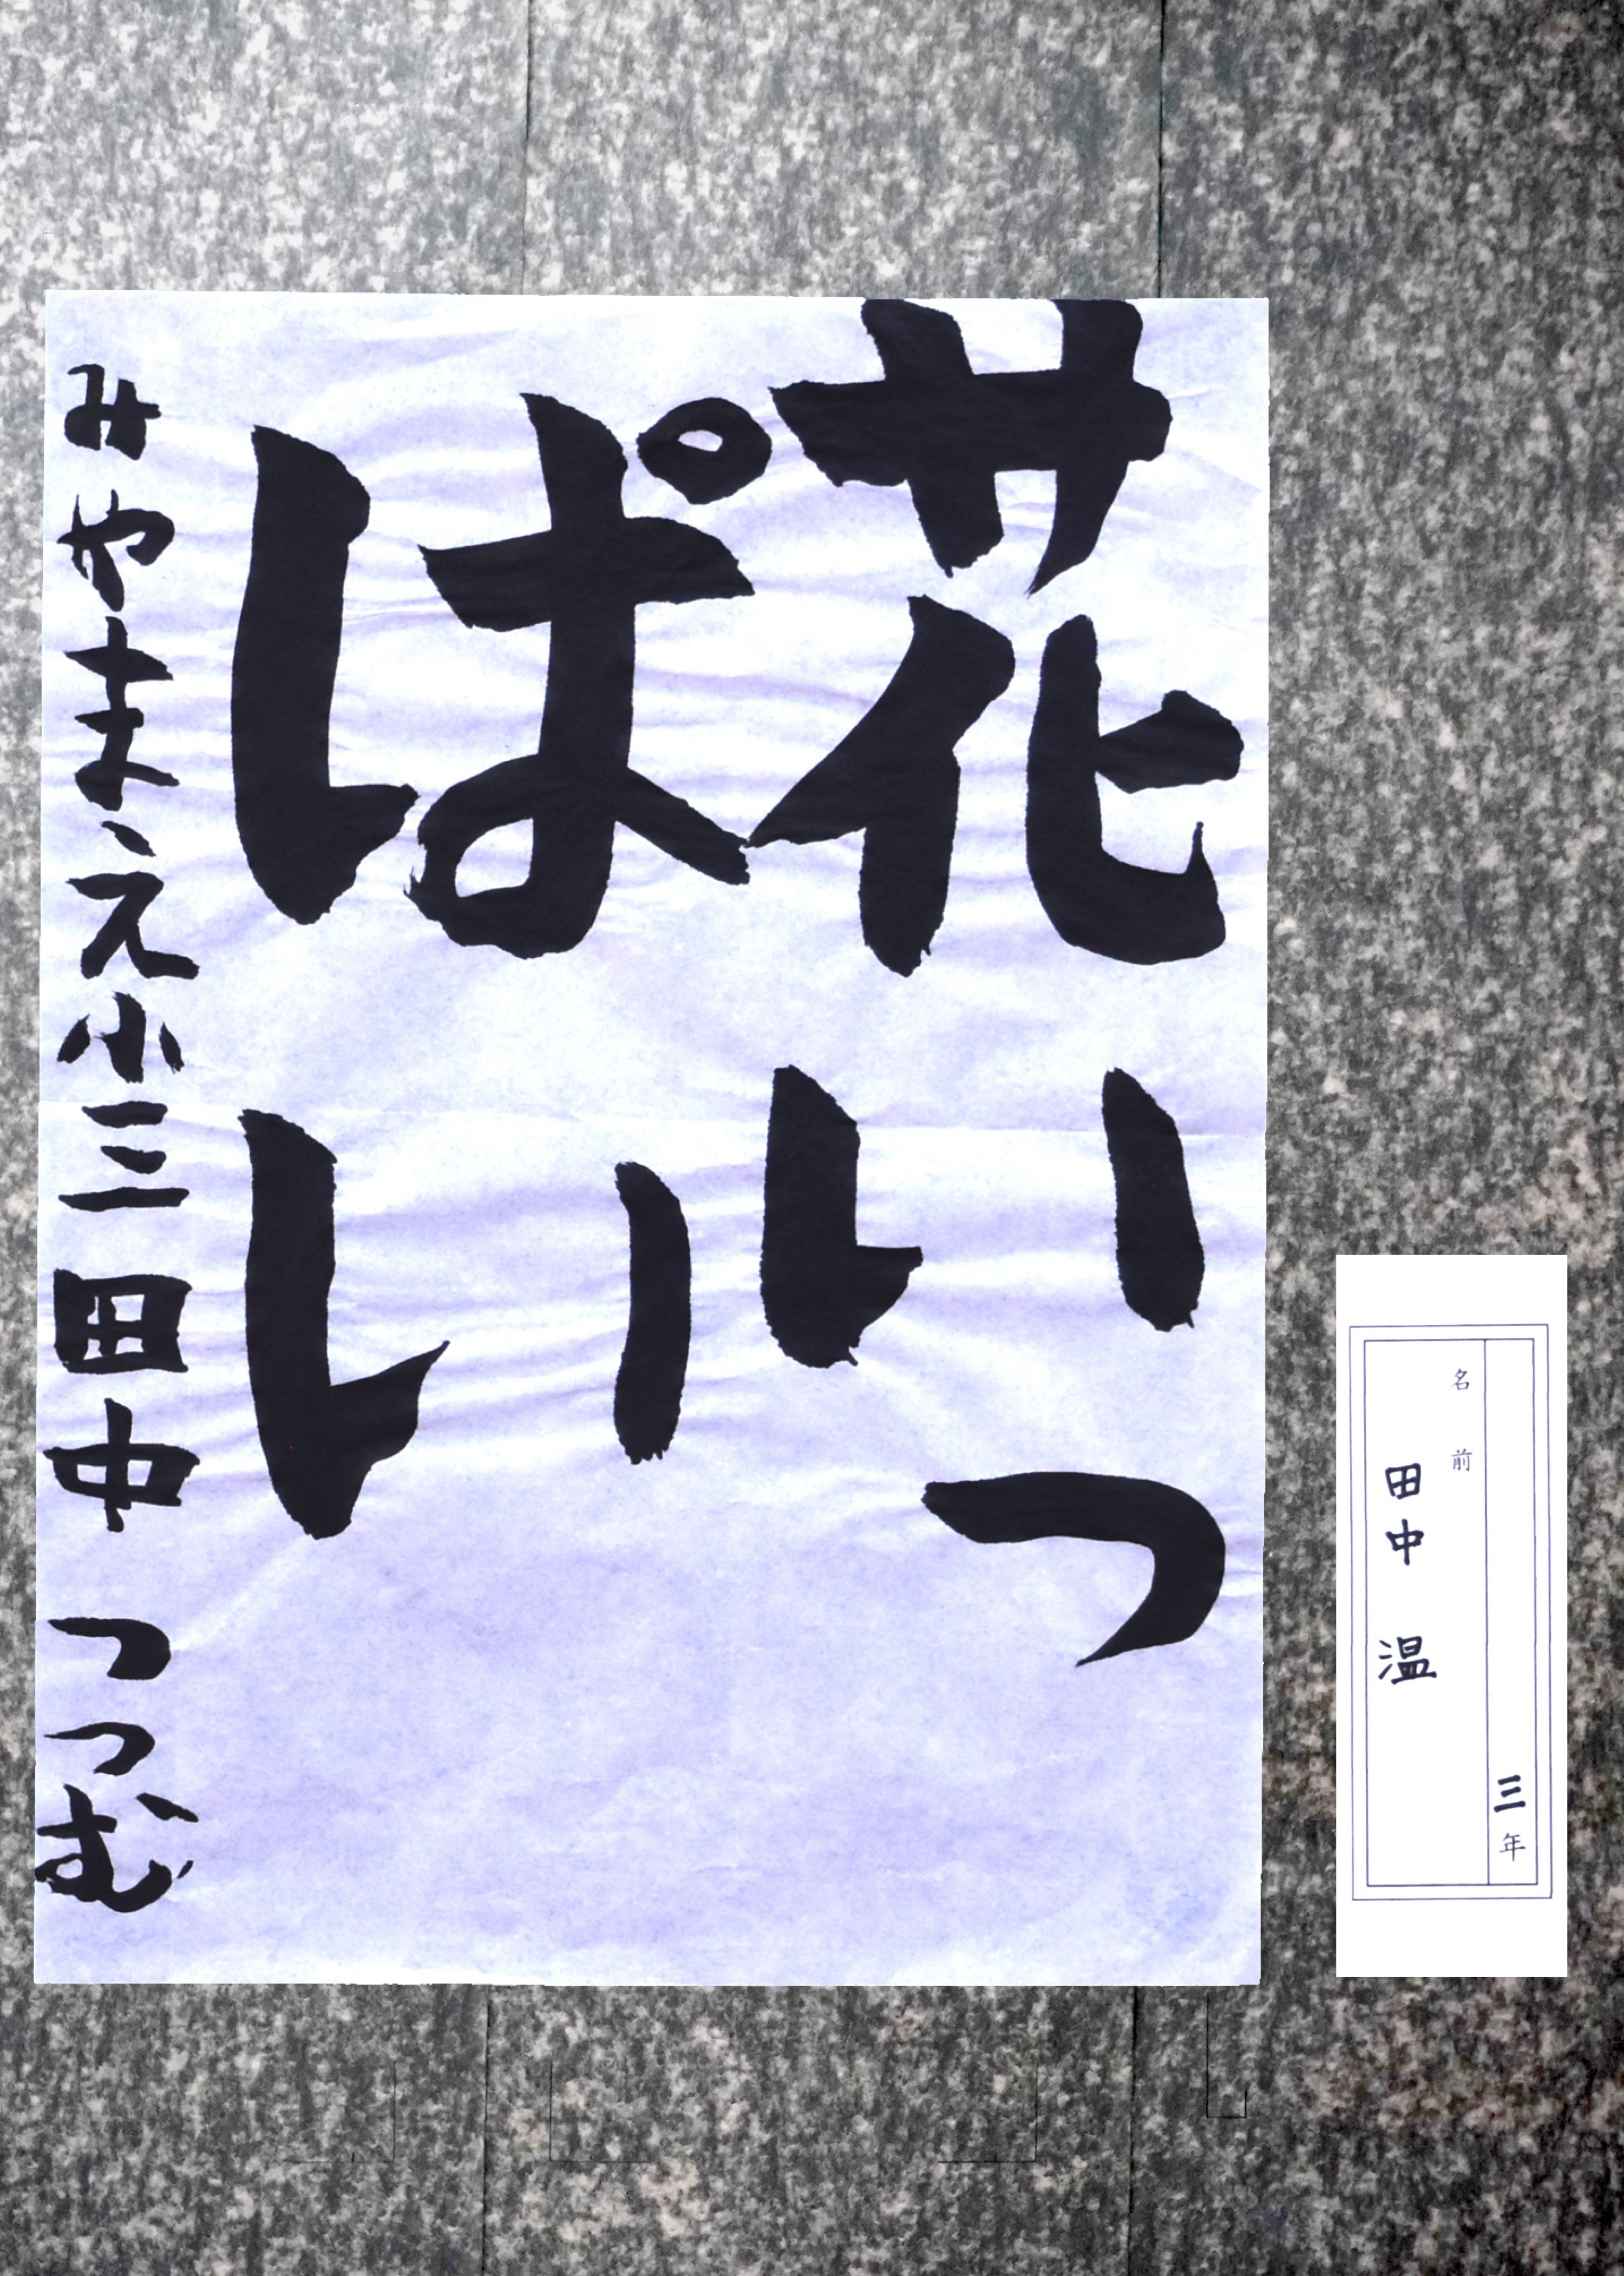 花いっ
ぱい
みやまえ小三田中つつむ
三年
名前
田中温